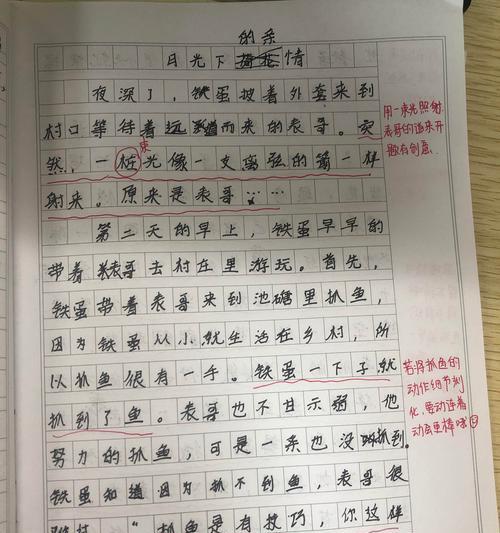 的亲
日光下情
夜深了，铁蛋披着外套来到
村口等待着远道而来的表哥。突
束
然，一桩光像一支离弦的箭一样
射来。原来是表哥……
第二天的早上，铁蛋早早的
带着表哥去村庄里游玩。首先，
铁蛋带着表哥来到池磄里抓鱼，
因为铁蛋从小就生活在乡村，所
以抓鱼很有一手。铁蛋一下子就
抓到了鱼。表哥也不甘示弱，他
努力的抓鱼，可是一条也没抓到。
铁蛋知道因为抓不到鱼，表哥很
“抓鱼是有技巧，你这样
用一束光照射
表哥的到来开
题有创意。
若将抓鱼的
动作细节刻
化，劳动连着
动会更棒哦